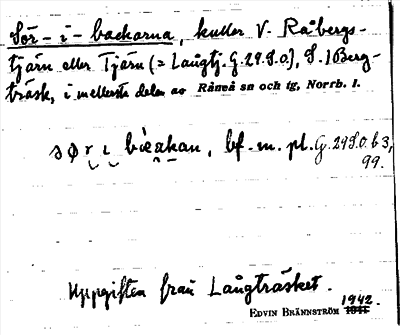 Sör-i-backarna, kullar V. Råbergs-
tjärn eller Tjärn (= Långtj. G. 29.S.o.), S. i Berg-
träsk, i mellersta delen av Råneå sn och tg, Norrb. l.
bf. m. pl. G. 29 S.o. b 3,
99.
Uppgiften från Långträsket.
1942.
EDVIN BRÄNNSTRÖM 1941